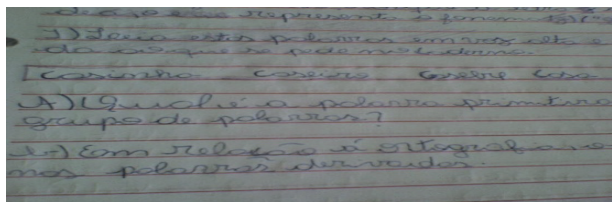 representa o fonema
7) Leia estas palavras em voz alta e
da o que se pede no caderno.
casinha caseiro casebre casa
A) Qual é a palavra primitiva
grupo de palavras?
) Em relação à ortografia o
nas palavras derivadas.